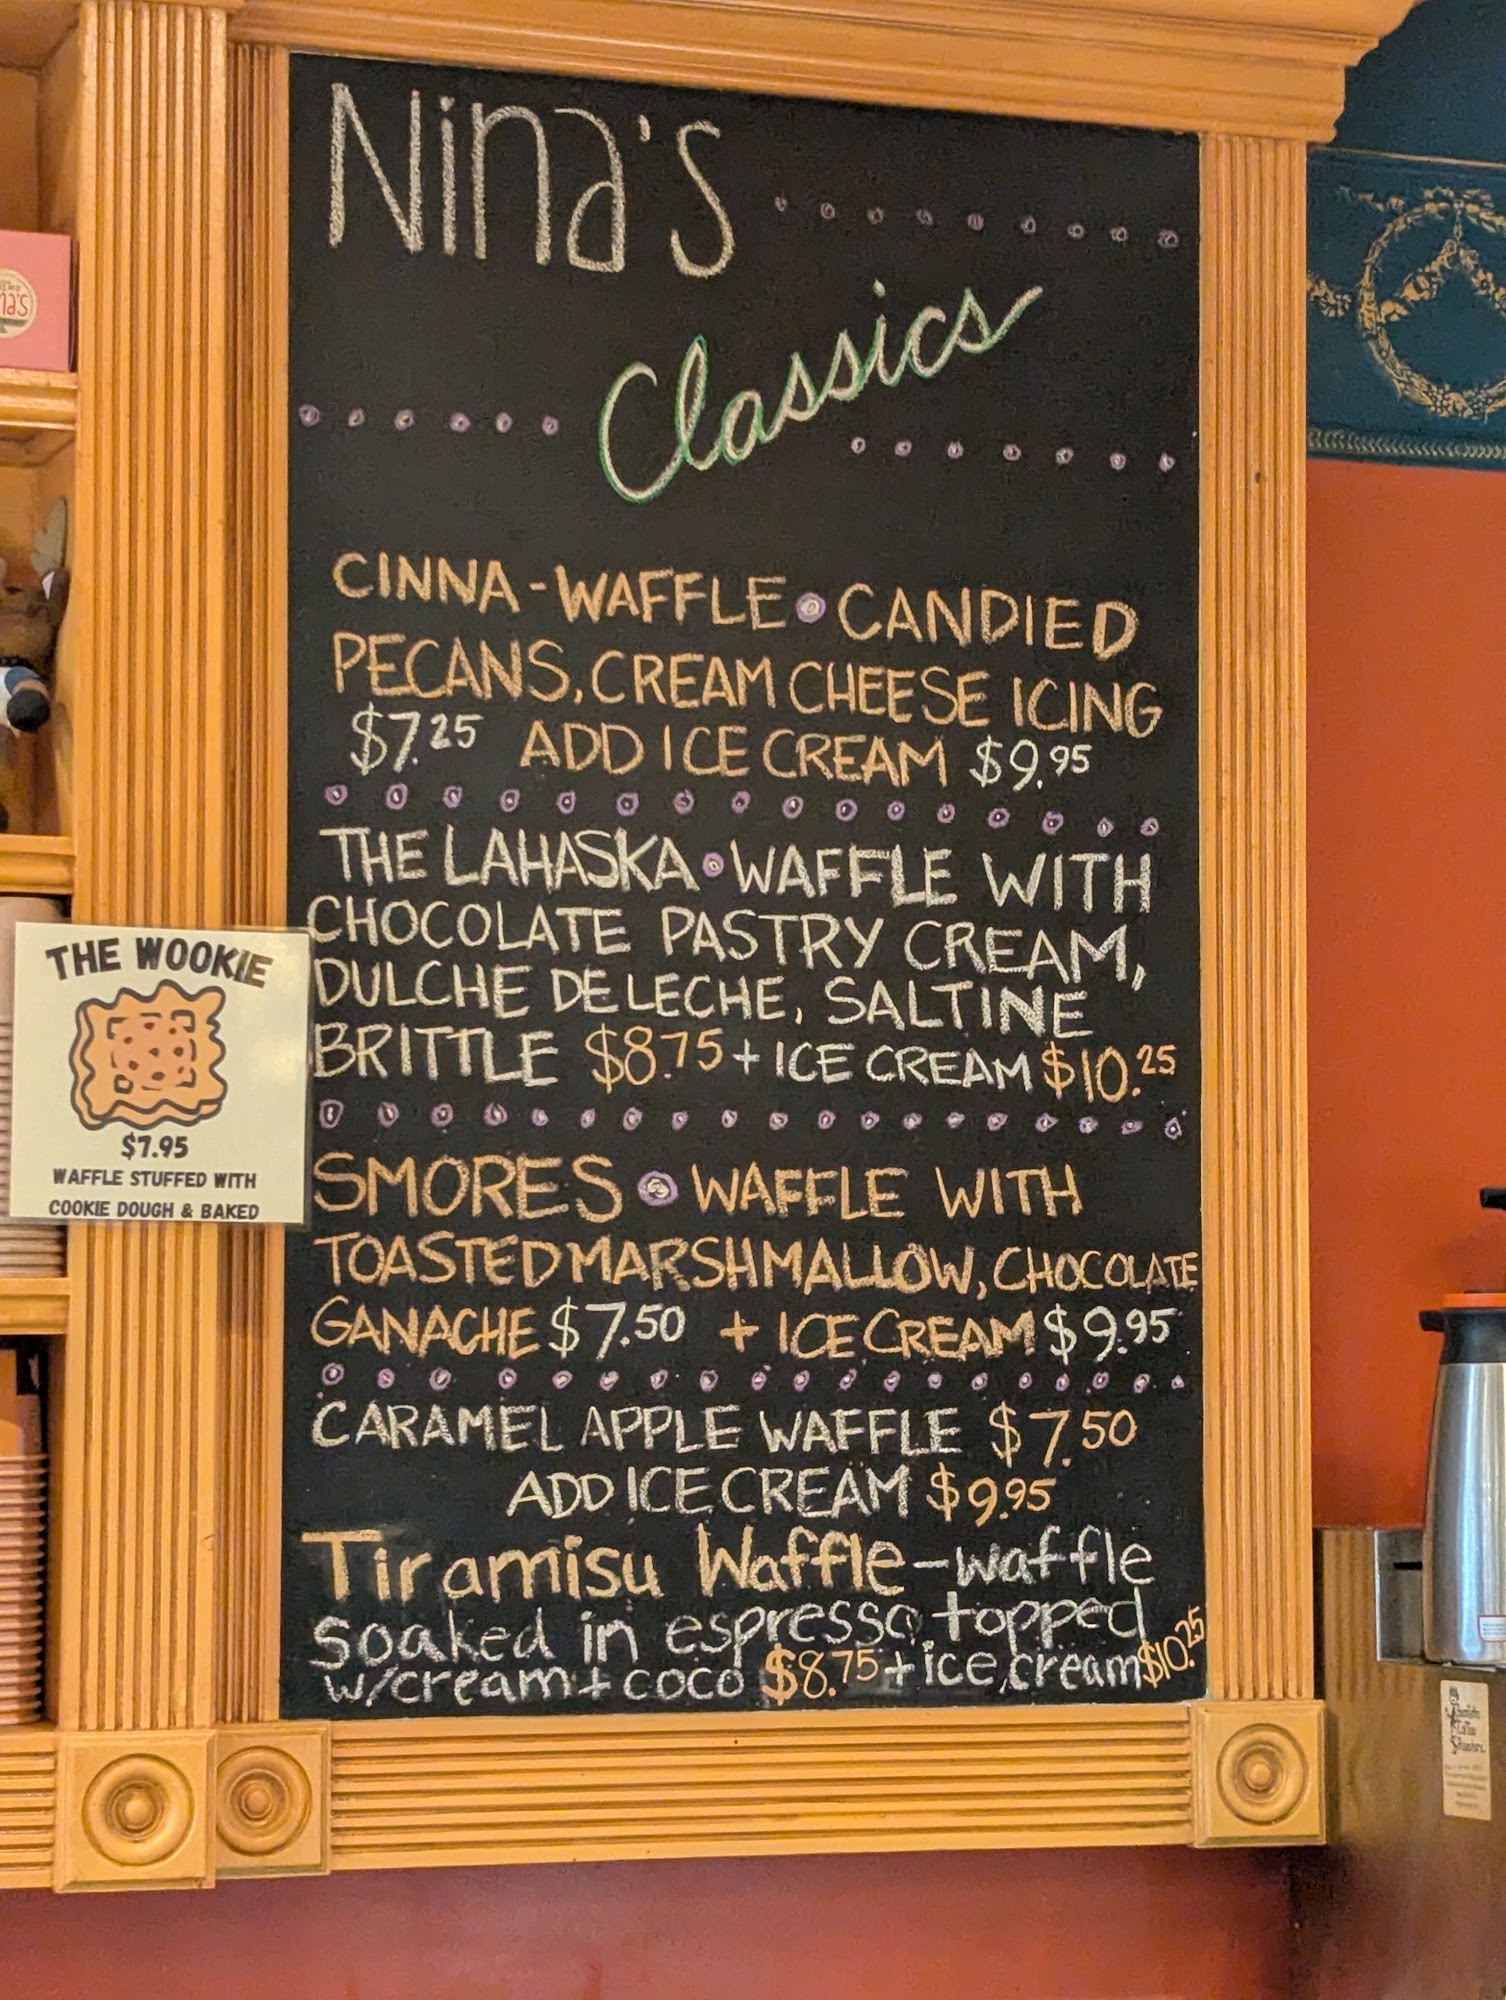 Nina's
Classics
CINNA-WAFFLE • CANDIED
PECANS, CREAM CHEESE ICING
$7.25 ADD ICE CREAM $9.95
THE LAHASKA • WAFFLE WITH
CHOCOLATE PASTRY CREAM,
DULCHE DE LECHE, SALTINE
BRITTLE $8.75 + ICE CREAM $10.25
SMORES • WAFFLE WITH
TOASTED MARSHMALLOW, CHOCOLATE
GANACHE $7.50 + ICE CREAM $9.95
CARAMEL APPLE WAFFLE $7.50
ADD ICE CREAM $9.95
Tiramisu Waffle - waffle
soaked in espresso topped
w/cream + coco $8.75 + ice cream $10.25
THE WOOKIE
$7.95
WAFFLE STUFFED WITH
COOKIE DOUGH & BAKED